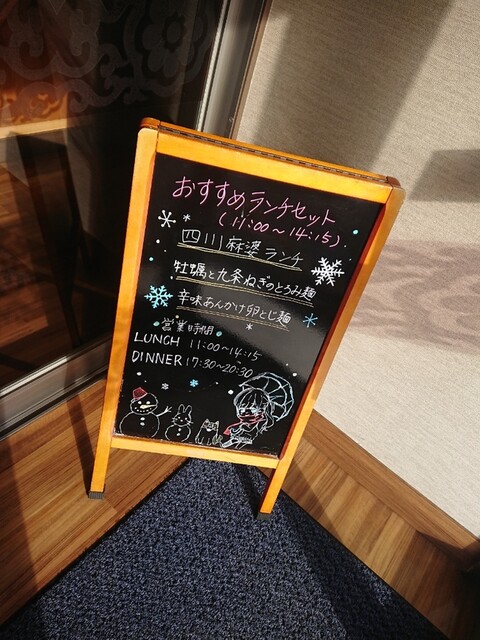 おすすめランチセット
(11:00～14:15).
四川麻婆ランチ
牡蠣と九条ねぎのとろみ麺
辛味あんかけ卵とじ麺
営業時間
LUNCH 11:00～14:15
DINNER 17:30～20:30